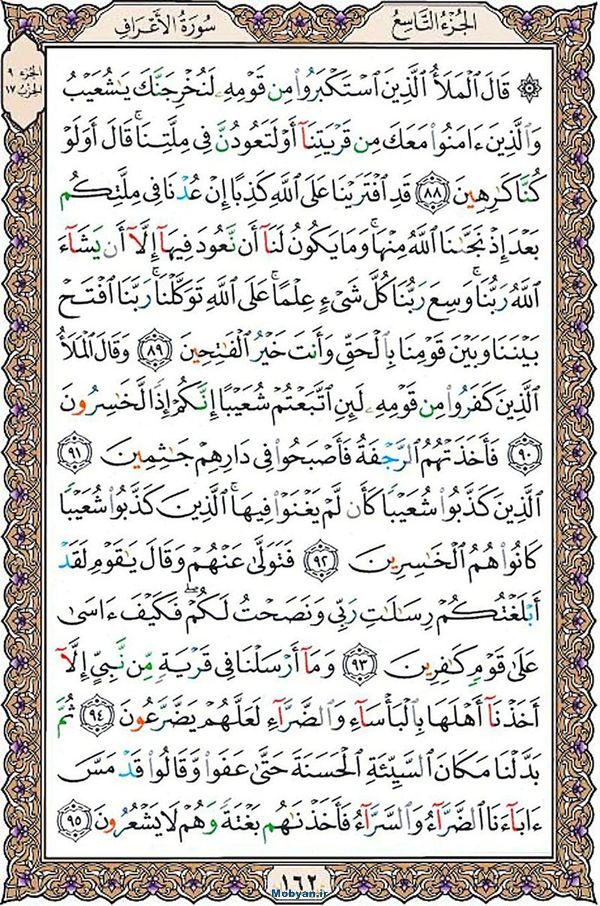 الجُزْءُ التَّاسِعُ
سُورَةُ الأَعْرَافِ
الجزء ٩
الحزب ١٧
۞ قَالَ ٱلْمَلَأُ ٱلَّذِينَ ٱسْتَكْبَرُوا۟ مِن قَوْمِهِۦ لَنُخْرِجَنَّكَ يَـٰشُعَيْبُ
وَٱلَّذِينَ ءَامَنُوا۟ مَعَكَ مِن قَرْيَتِنَآ أَوْ لَتَعُودُنَّ فِى مِلَّتِنَا ۚ قَالَ أَوَلَوْ
كُنَّا كَـٰرِهِينَ ﴿٨٨﴾ قَدِ ٱفْتَرَيْنَا عَلَى ٱللَّهِ كَذِبًا إِنْ عُدْنَا فِى مِلَّتِكُم
بَعْدَ إِذْ نَجَّىٰنَا ٱللَّهُ مِنْهَا ۚ وَمَا يَكُونُ لَنَآ أَن نَّعُودَ فِيهَآ إِلَّآ أَن يَشَآءَ
ٱللَّهُ رَبُّنَا ۚ وَسِعَ رَبُّنَا كُلَّ شَىْءٍ عِلْمًا ۚ عَلَى ٱللَّهِ تَوَكَّلْنَا ۚ رَبَّنَا ٱفْتَحْ
بَيْنَنَا وَبَيْنَ قَوْمِنَا بِٱلْحَقِّ وَأَنتَ خَيْرُ ٱلْفَـٰتِحِينَ ﴿٨٩﴾ وَقَالَ ٱلْمَلَأُ
ٱلَّذِينَ كَفَرُوا۟ مِن قَوْمِهِۦ لَئِنِ ٱتَّبَعْتُمْ شُعَيْبًا إِنَّكُمْ إِذًا لَّخَـٰسِرُونَ
﴿٩٠﴾ فَأَخَذَتْهُمُ ٱلرَّجْفَةُ فَأَصْبَحُوا۟ فِى دَارِهِمْ جَـٰثِمِينَ ﴿٩١﴾
ٱلَّذِينَ كَذَّبُوا۟ شُعَيْبًا كَأَن لَّمْ يَغْنَوْا۟ فِيهَا ۚ ٱلَّذِينَ كَذَّبُوا۟ شُعَيْبًا
كَانُوا۟ هُمُ ٱلْخَـٰسِرِينَ ﴿٩٢﴾ فَتَوَلَّىٰ عَنْهُمْ وَقَالَ يَـٰقَوْمِ لَقَدْ
أَبْلَغْتُكُمْ رِسَـٰلَـٰتِ رَبِّى وَنَصَحْتُ لَكُمْ ۖ فَكَيْفَ ءَاسَىٰ
عَلَىٰ قَوْمٍ كَـٰفِرِينَ ﴿٩٣﴾ وَمَآ أَرْسَلْنَا فِى قَرْيَةٍ مِّن نَّبِىٍّ إِلَّآ
أَخَذْنَآ أَهْلَهَا بِٱلْبَأْسَآءِ وَٱلضَّرَّآءِ لَعَلَّهُمْ يَضَّرَّعُونَ ﴿٩٤﴾ ثُمَّ
بَدَّلْنَا مَكَانَ ٱلسَّيِّئَةِ ٱلْحَسَنَةَ حَتَّىٰ عَفَوا۟ وَّقَالُوا۟ قَدْ مَسَّ
ءَابَآءَنَا ٱلضَّرَّآءُ وَٱلسَّرَّآءُ فَأَخَذْنَـٰهُم بَغْتَةً وَهُمْ لَا يَشْعُرُونَ ﴿٩٥﴾
١٦٢
Mobyan.ir